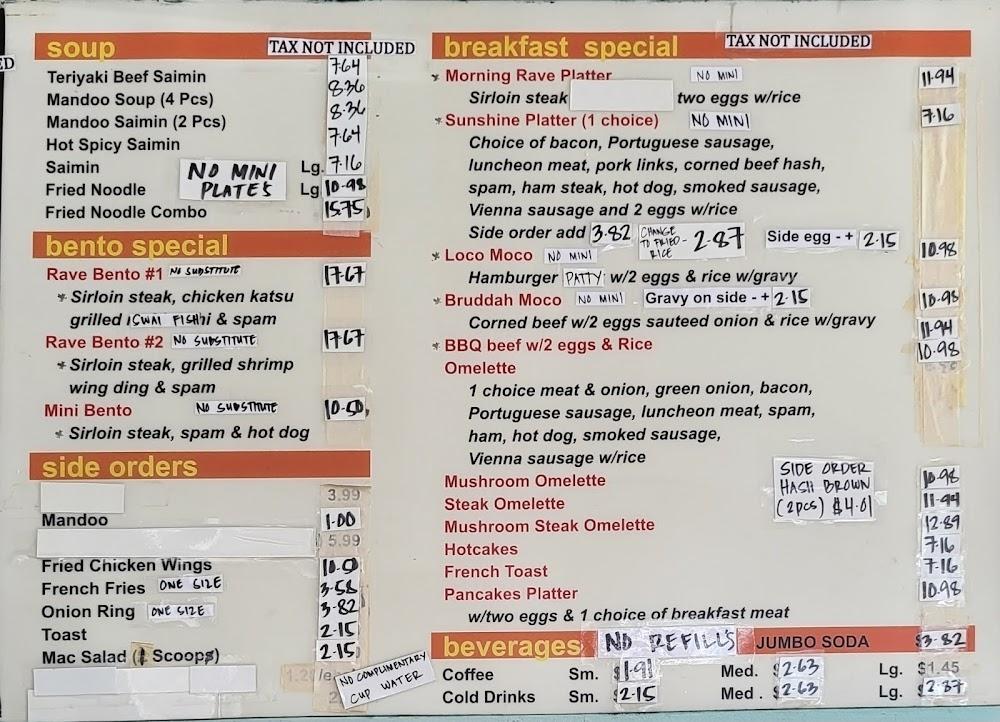 ED
soup TAX NOT INCLUDED
Teriyaki Beef Saimin 7.64
Mandoo Soup (4 Pcs) 8.36
Mandoo Saimin (2 Pcs) 8.36
Hot Spicy Saimin 7.64
Saimin Lg. 7.16
NO MINI
PLATES
Fried Noodle Lg 10.98
Fried Noodle Combo 15.75
bento special
Rave Bento #1 NO SUBSTITUTE 17.67
* Sirloin steak, chicken katsu
grilled SWAI FISH & spam
Rave Bento #2 NO SUBSTITUTE 17.67
* Sirloin steak, grilled shrimp
wing ding & spam
Mini Bento NO SUBSTITUTE 10.50
* Sirloin steak, spam & hot dog
side orders
3.99
Mandoo 1.00
5.99
Fried Chicken Wings 10.50
French Fries ONE SIZE 3.58
Onion Ring ONE SIZE 3.82
Toast 2.15
Mac Salad (1 Scoop) 2.15
NO COMPLIMENTARY
CUP WATER
breakfast special TAX NOT INCLUDED
* Morning Rave Platter NO MINI 11.94
Sirloin steak two eggs w/rice
* Sunshine Platter (1 choice) NO MINI 7.16
Choice of bacon, Portuguese sausage,
luncheon meat, pork links, corned beef hash,
spam, ham steak, hot dog, smoked sausage,
Vienna sausage and 2 eggs w/rice
Side order add 3.82 CHANGE TO FRIED RICE - 2.87 Side egg - + 2.15
* Loco Moco NO MINI 10.98
Hamburger PATTY w/2 eggs & rice w/gravy
* Bruddah Moco NO MINI Gravy on side - + 2.15 10.98
Corned beef w/2 eggs sauteed onion & rice w/gravy
* BBQ beef w/2 eggs & Rice 11.94
Omelette 10.98
1 choice meat & onion, green onion, bacon,
Portuguese sausage, luncheon meat, spam,
ham, hot dog, smoked sausage,
Vienna sausage w/rice
SIDE ORDER
HASH BROWN
(2pcs) $4.01
Mushroom Omelette 10.98
Steak Omelette 11.94
Mushroom Steak Omelette 12.89
Hotcakes 7.16
French Toast 7.16
Pancakes Platter 10.98
w/two eggs & 1 choice of breakfast meat
beverages NO REFILLS JUMBO SODA $3.82
Coffee Sm. $1.91 Med. $2.63 Lg. $1.45
Cold Drinks Sm. $2.15 Med. $2.63 Lg. $2.87